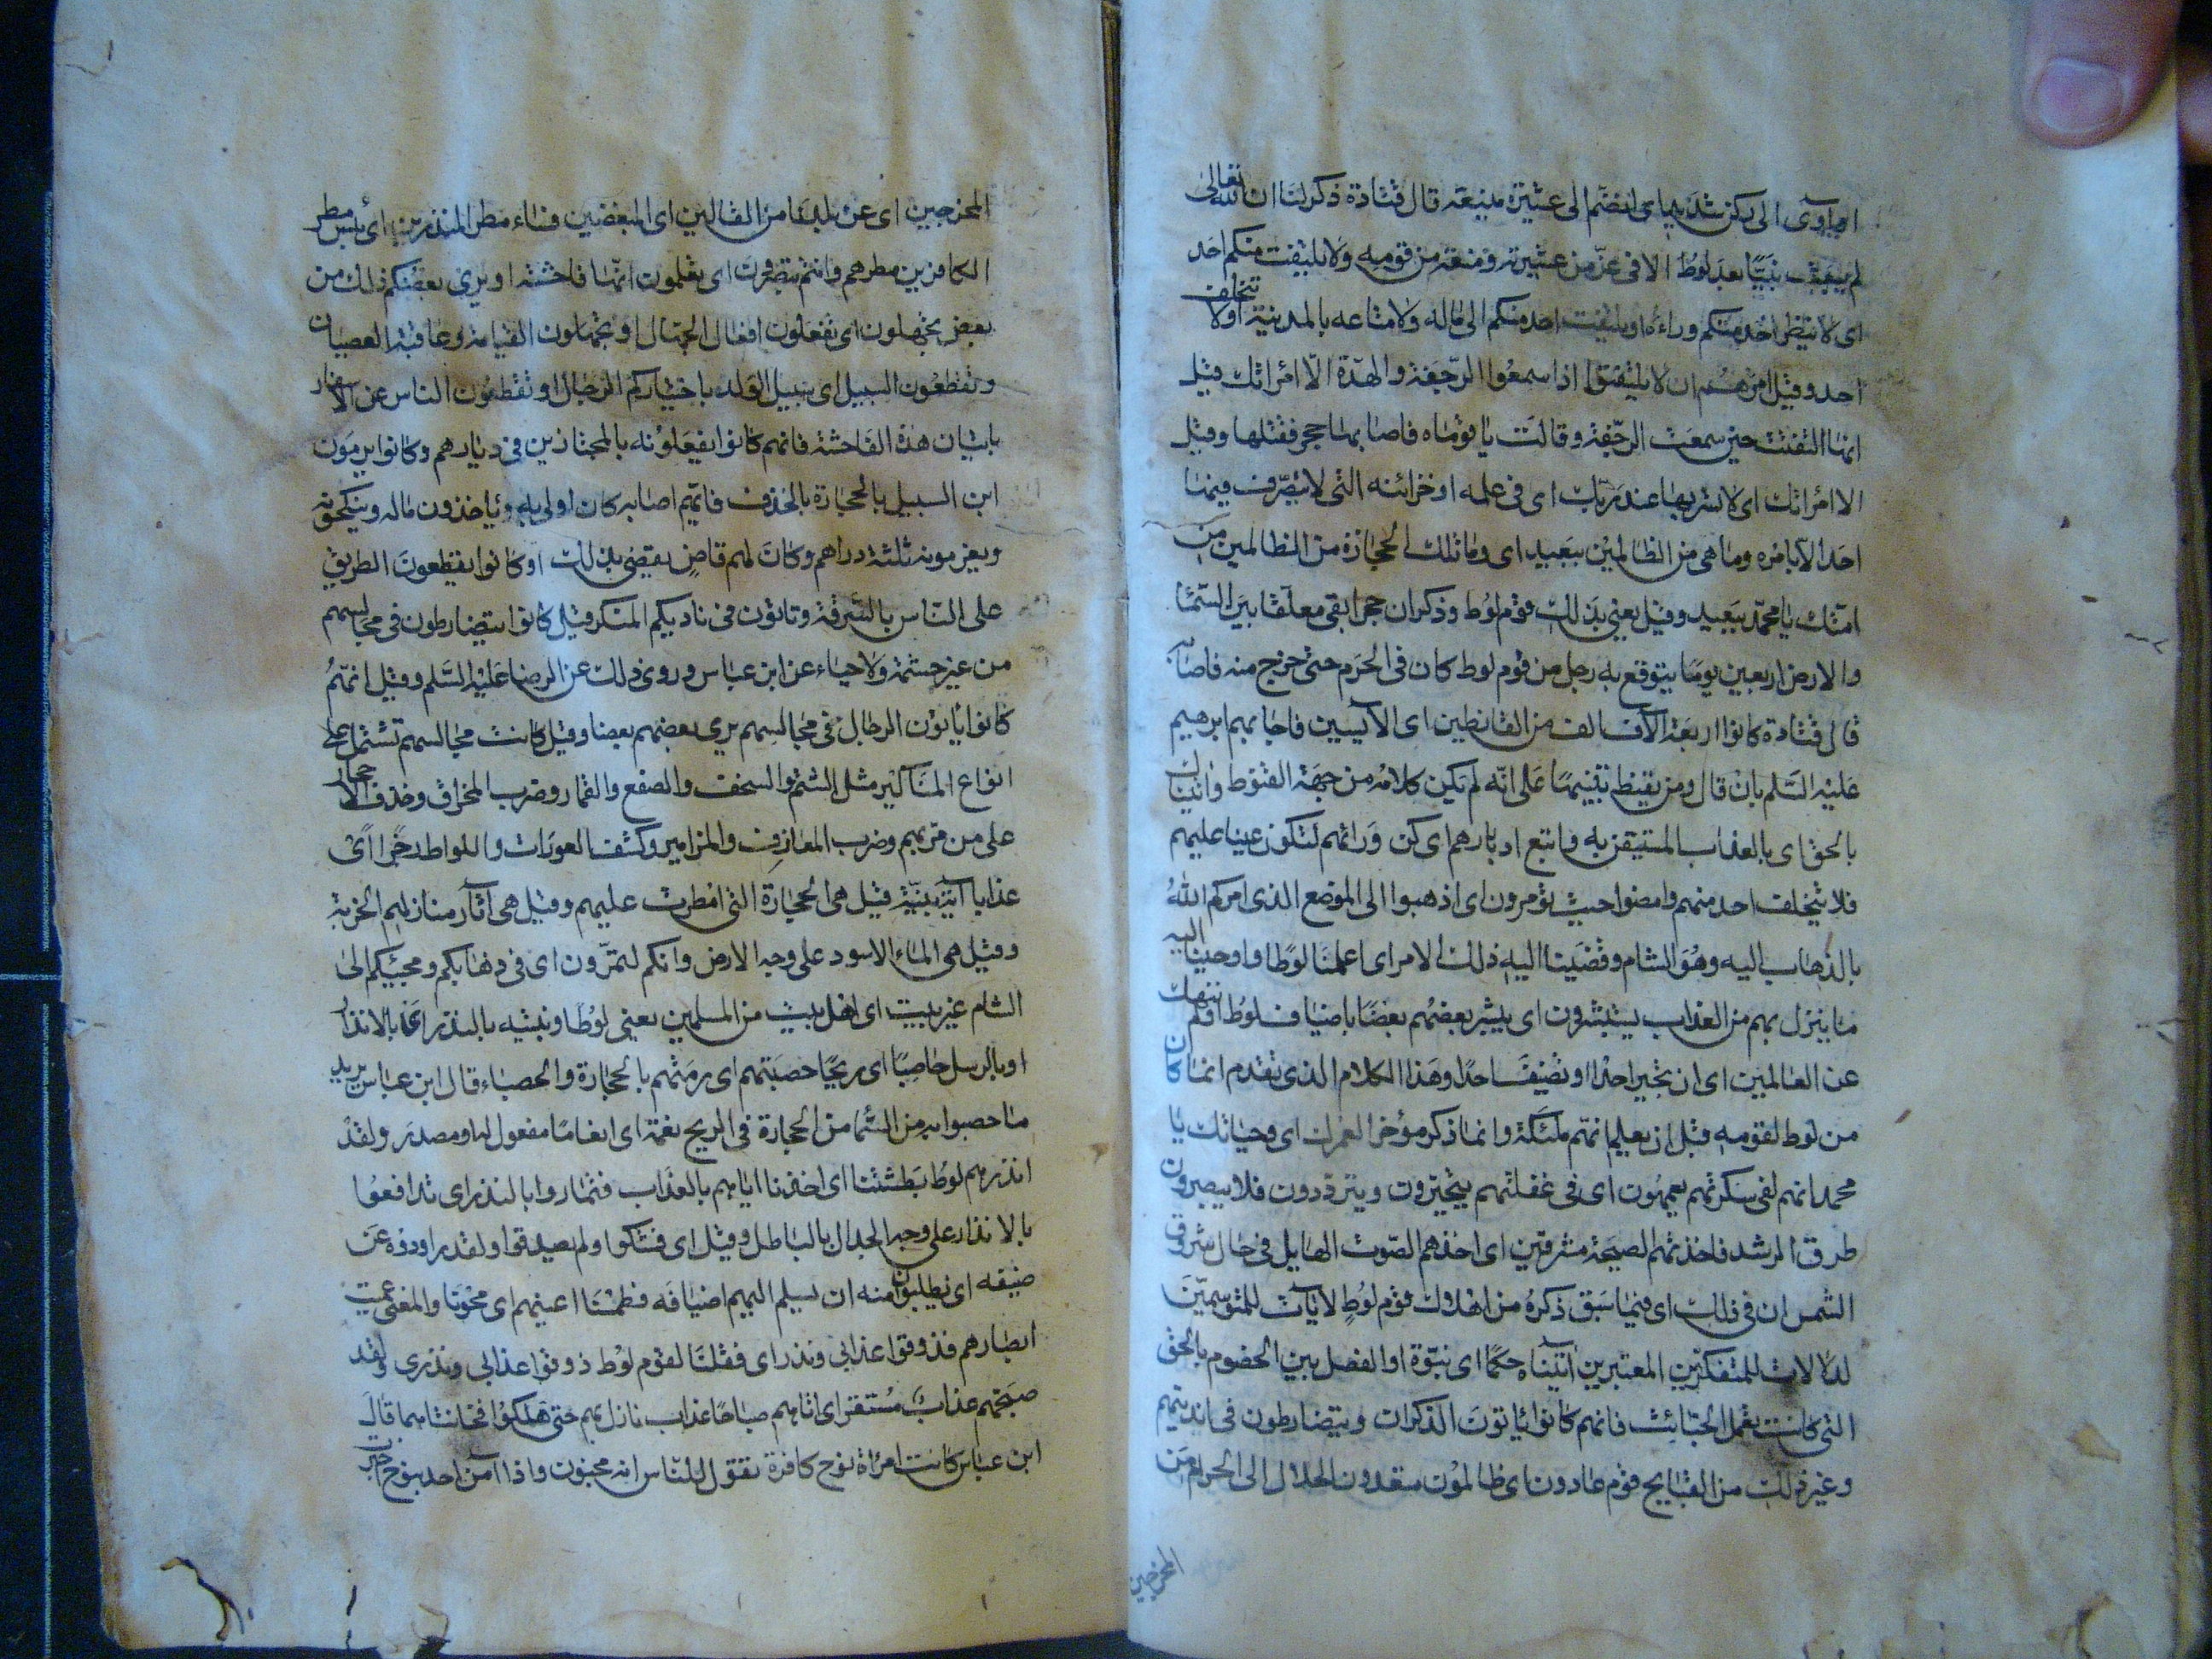 او آوى الى ركن شديد اى انضم الى عشيرة منيعة قال قتادة ذكر لنا ان الله تعالى
لم يبعث نبيا بعد لوط الا فى عز من عشيرته ومنعة من قومه ولا يلتفت منكم احد
اى لا ينظر احد منكم وراءه او يلتفت احد منكم الى ماله ولا متاعه بالمدينة اولا يتخلف
احد وقيل امرهم ان لا يلتفتوا اذا سمعوا الرجفة والهدة الا امراتك قيل
انها التفتت حين سمعت الرجفة وقالت يا قوماه فاصابها حجر فقتلها وقيل
الا امراتك اى لا تسر بها عند ربك اى فى علمه او خزائنه التى لا يتصرف فيها
احد الا بامره وما هى من الظالمين ببعيد اى وما تلك الحجارة من الظالمين من
امتك يا محمد ببعيد وقيل يعنى بذلك قوم لوط وذكر ان حجرا بقى معلقا بين السماء
والارض اربعين يوما يتوقع به رجل من قوم لوط كان فى الحرم حتى خرج منه فاصابه
قال قتادة كانوا اربعة آلاف الف من القانطين اى الآيسين فاجابهم ابرهيم
عليه السلم بان قال ومن يقنط تنبيها على انه لم يكن كلامه من جهة القنوط واتيناك
بالحق اى بالعذاب المستيقن به واتبع ادبارهم اى كن ورائهم لتكون عينا عليهم
فلا يتخلف احد منهم وامضوا حيث تؤمرون اى اذهبوا الى الموضع الذى امركم الله
بالذهاب اليه وهو الشام وقضينا اليه ذلك الامر اى اعلمنا لوطا واوحينا اليه
ما ينزل بهم من العذاب يستبشرون اى يبشر بعضهم بعضا باضياف لوط اولم ننهك
عن العالمين اى ان تجير احدا او تضيف احدا وهذا الكلام الذى تقدم انما كان
من لوط لقومه قبل ان يعلم انهم ملئكة وانما ذكر مؤخرا لعمرك اى وحياتك يا
محمد انهم لفى سكرتهم يعمهون اى فى غفلتهم يتحيرون ويترددون فلا يبصرون
طرق الرشد فاخذتهم الصيحة مشرقين اى اخذهم الصوت الهايل فى حال شروق
الشمس ان فى ذلك اى فيما سبق ذكره من اهلاك قوم لوط لايات للمتوسمين
لدلالات للمتفكرين المعتبرين آتيناه حكما اى نبوة او الفصل بين الخصوم بالحق
التى كانت تعمل الخبائث فانهم كانوا ياتون الذكران ويتضارطون فى انديتهم
وغير ذلك من القبايح قوم عادون اى ظالمون متعدون الحلال الى الحرام من
المخرجين
المخرجين اى عن بلدنا من القالين اى المبغضين فساء مطر المنذرين اى بئس مطر
الكافرين مطرهم وانتم تبصرون اى تعلمون انها فاحشة او يرى بعضكم ذلك من
بعض تجهلون اى تفعلون افعال الجهال او تجهلون القيامة وعاقبة العصيان
وتقطعون السبيل اى سبيل الولد باختياركم الرجال او تقطعون الناس عن الاسفار
باتيان هذه الفاحشة فانهم كانوا يفعلونه بالمجتازين فى ديارهم وكانوا يرمون
ابن السبيل بالحجارة بالخذف فايهم اصابه كان اولى به وياخذون ماله وينكحونه
ويغرمونه ثلثة دراهم وكان لهم قاض يقضى بذلك او كانوا يقطعون الطريق
على الناس بالسرقة وتاتون فى ناديكم المنكر قيل كانوا يتضارطون فى مجالسهم
من غير حشمة ولا حياء عن ابن عباس وروى ذلك عن الرضا عليه السلم وقيل انهم
كانوا ياتون الرجال فى مجالسهم يرى بعضهم بعضا وقيل كانت مجالسهم تشتمل على
انواع المناكير مثل الشتم والسخف والصفع والقمار وضرب المخراق وخذف الاحجار
على من مر بهم وضرب المعازف والمزامير وكشف العورات واللواط رجزا اى
عذابا آية بينة قيل هى الحجارة التى امطرت عليهم وقيل هى آثار منازلهم الخربة
وقيل هى الماء الاسود على وجه الارض وانكم لتمرون اى فى ذهابكم ومجيئكم الى
الشام غير بيت اى اهل بيت من المسلمين يعنى لوطا وبنتيه بالنذر اى بالانذار
او بالرسل حاصبا اى ريحا حصبتهم اى رمتهم بالحجارة والحصباء قال ابن عباس يريد
ما حصبوا به من السماء من الحجارة فى الريح نعمة اى انعاما مفعول له او مصدر ولقد
انذرهم لوط بطشتنا اى اخذنا اياهم بالعذاب فتماروا بالنذر اى تدافعوا
بالانذار على وجه الجدال بالباطل وقيل اى فشكوا ولم يصدقوا ولقد راودوه عن
ضيفه اى يطلبوا منه ان يسلم اليهم اضيافه فطمسنا اعينهم اى محونا والمعنى عميت
ابصارهم فذوقوا عذابى ونذر اى فقلنا لقوم لوط ذوقوا عذابى ونذرى ولقد
صبحهم عذاب مستقر اى اتاهم صباحا عذاب نازل بهم حتى هلكوا فخانتاهما قال
ابن عباس كانت امراة نوح كافرة تقول للناس انه مجنون واذا آمن احد بنوح اخبرت